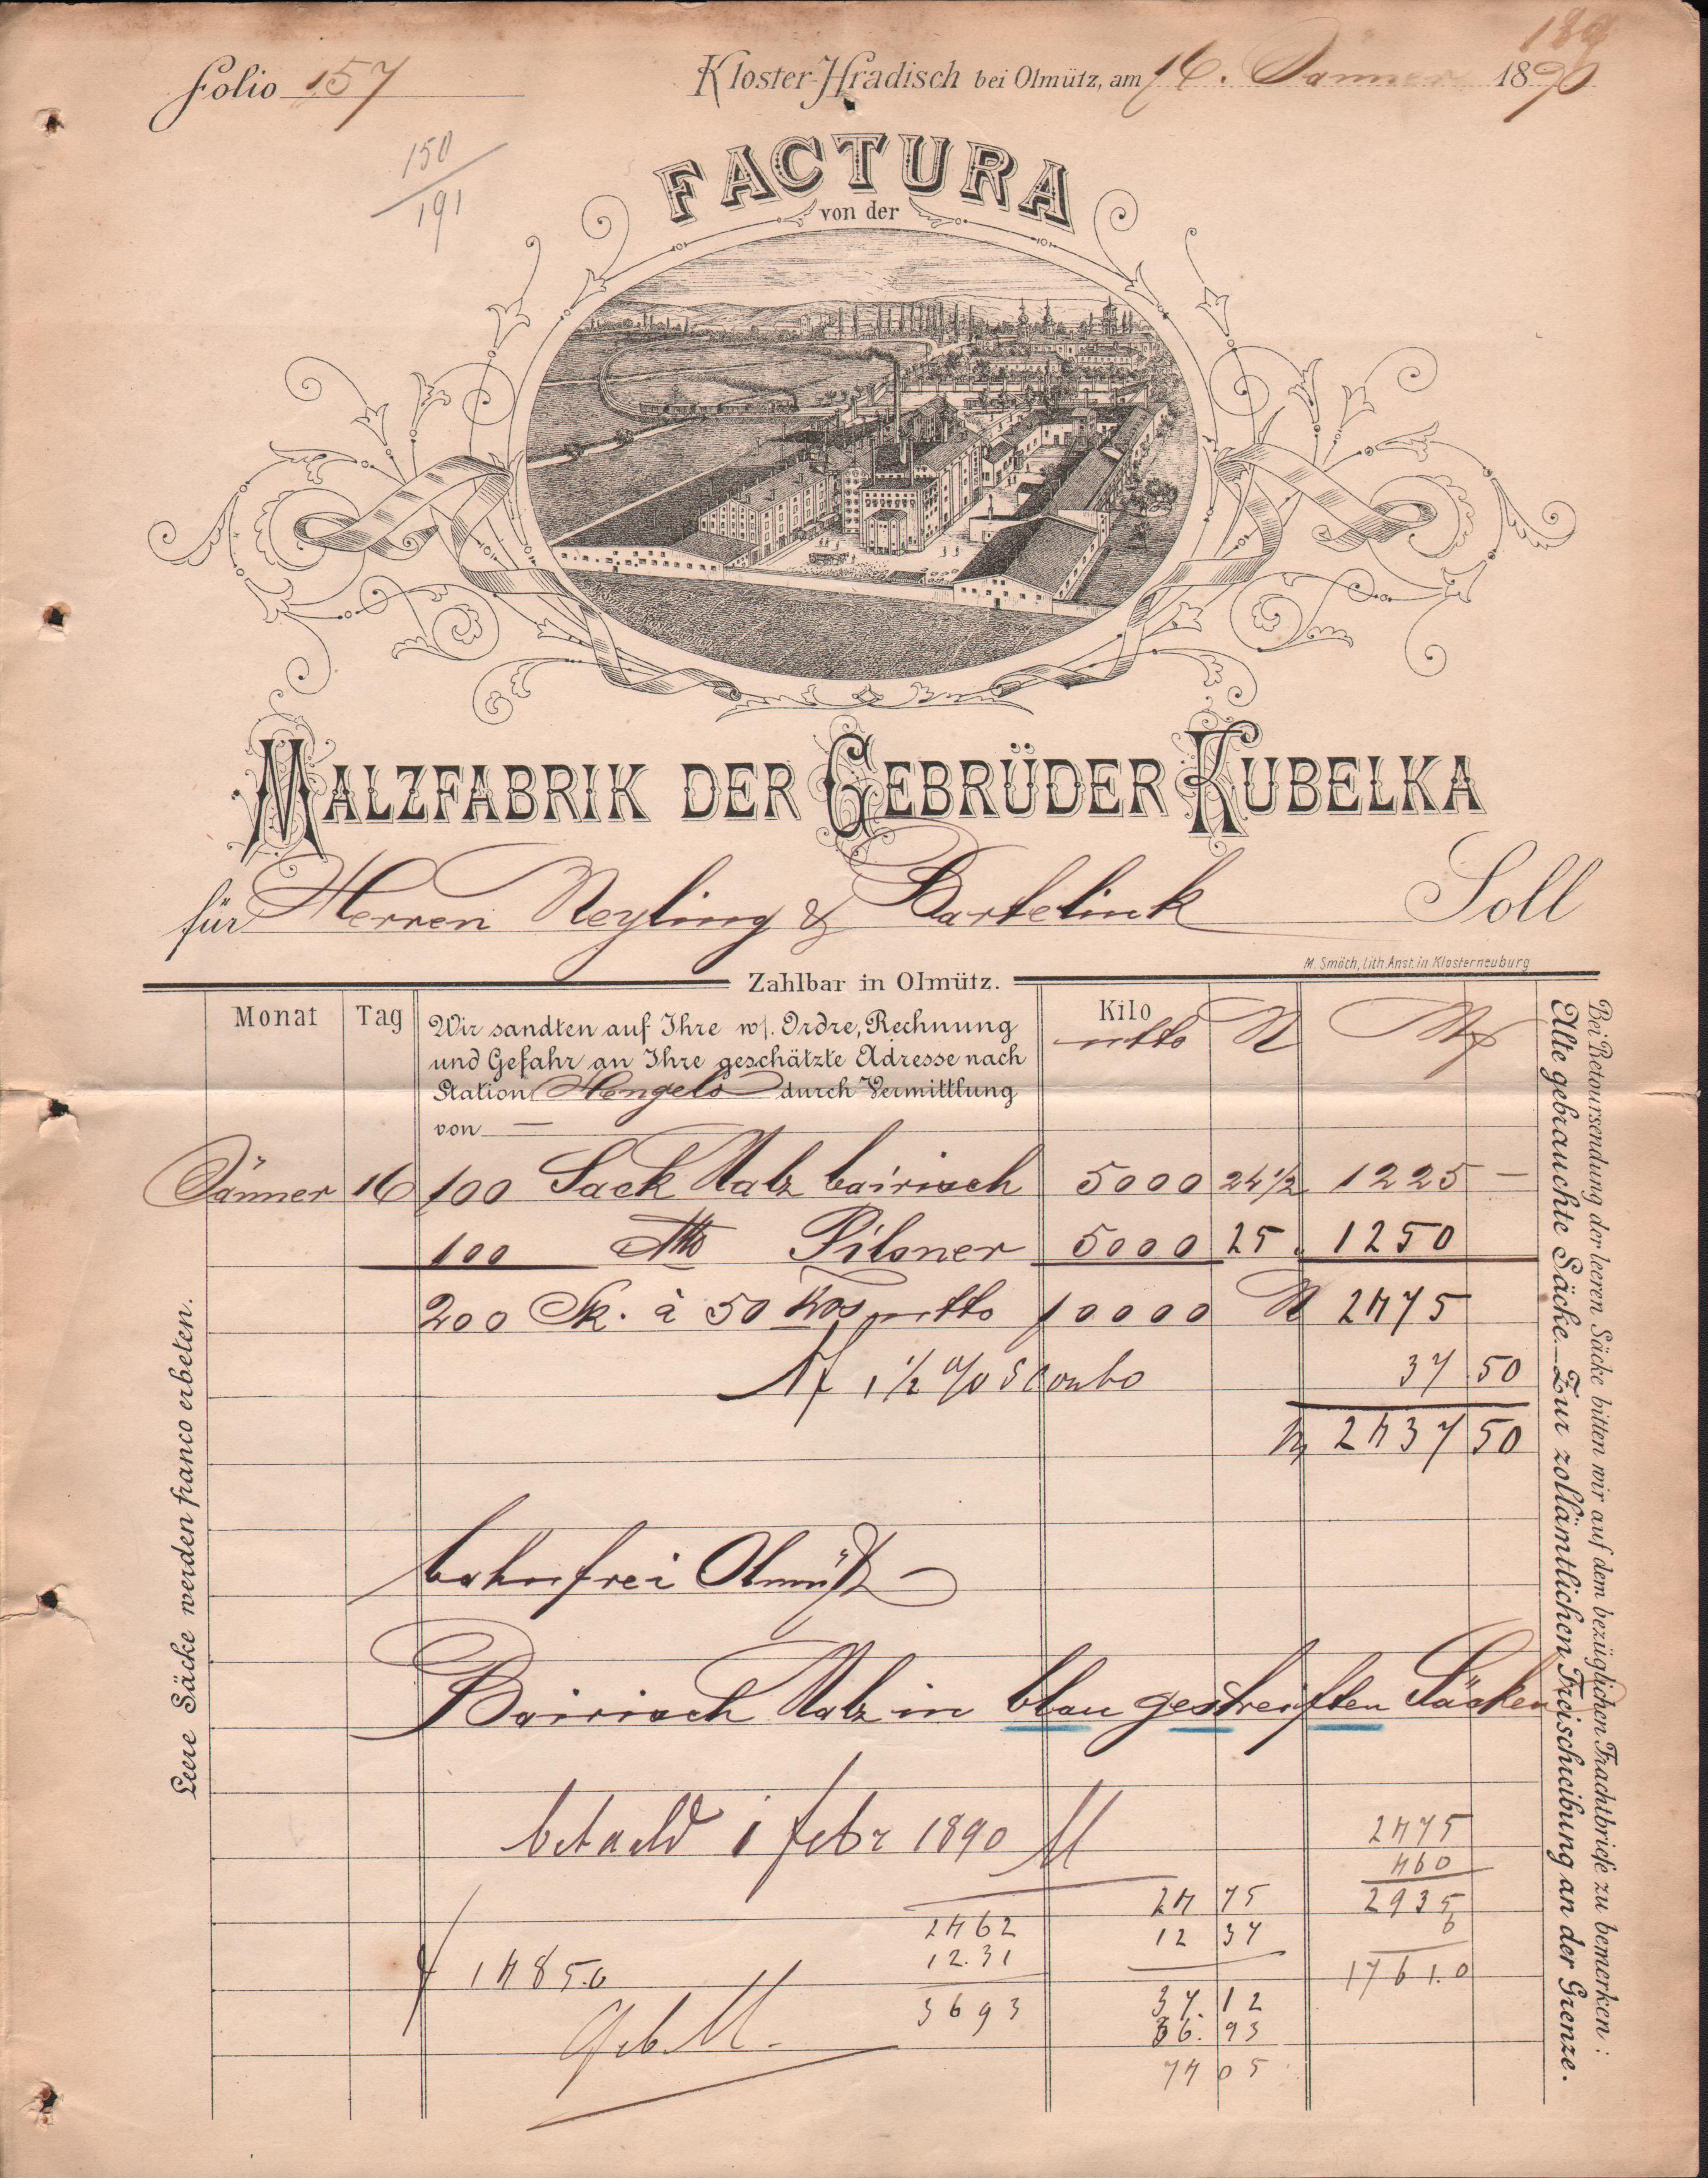 189
Folio 157
Kloster-Hradisch bei Olmütz, am 16. Janner 1890
150
191
FACTURA
von der
MALZFABRIK DER GEBRÜDER KUBELKA
für Herren Meyling & Bartelink Soll
M. Smöch, Lith. Anst. in Klosterneuburg
Zahlbar in Olmütz.
Monat Tag Kilo
ntto
Wir sandten auf Ihre w/. Ordre, Rechnung
und Gefahr an Ihre geschätzte Adresse nach
Station Hengelo durch Vermittlung
von —
Jänner 16 100 Sack Malz bairisch 5000 24 1/2 1225 —
100 dtto Pilsner 5000 25. 1250
200 Sk. à 50 Kos ntto 10000 2475
1 1/2 % Sconto 37 50
2437 50
bahnfrei Olmütz
Bairisch Malz in blau gestreiften Säcken
betaeld 1 Febr 1890 M
2475
460
2935
6
1761.0
24 75
12 37
37.12
36.93
74 05
2462
12.31
3693
1485.0
Geb. M.
Leere Säcke werden franco erbeten.
Bei Retoursendung der leeren Säcke bitten wir auf dem bezüglichen Frachtbriefe zu bemerken:
Alte gebrauchte Säcke – Zur zollämtlichen Freischreibung an der Grenze.